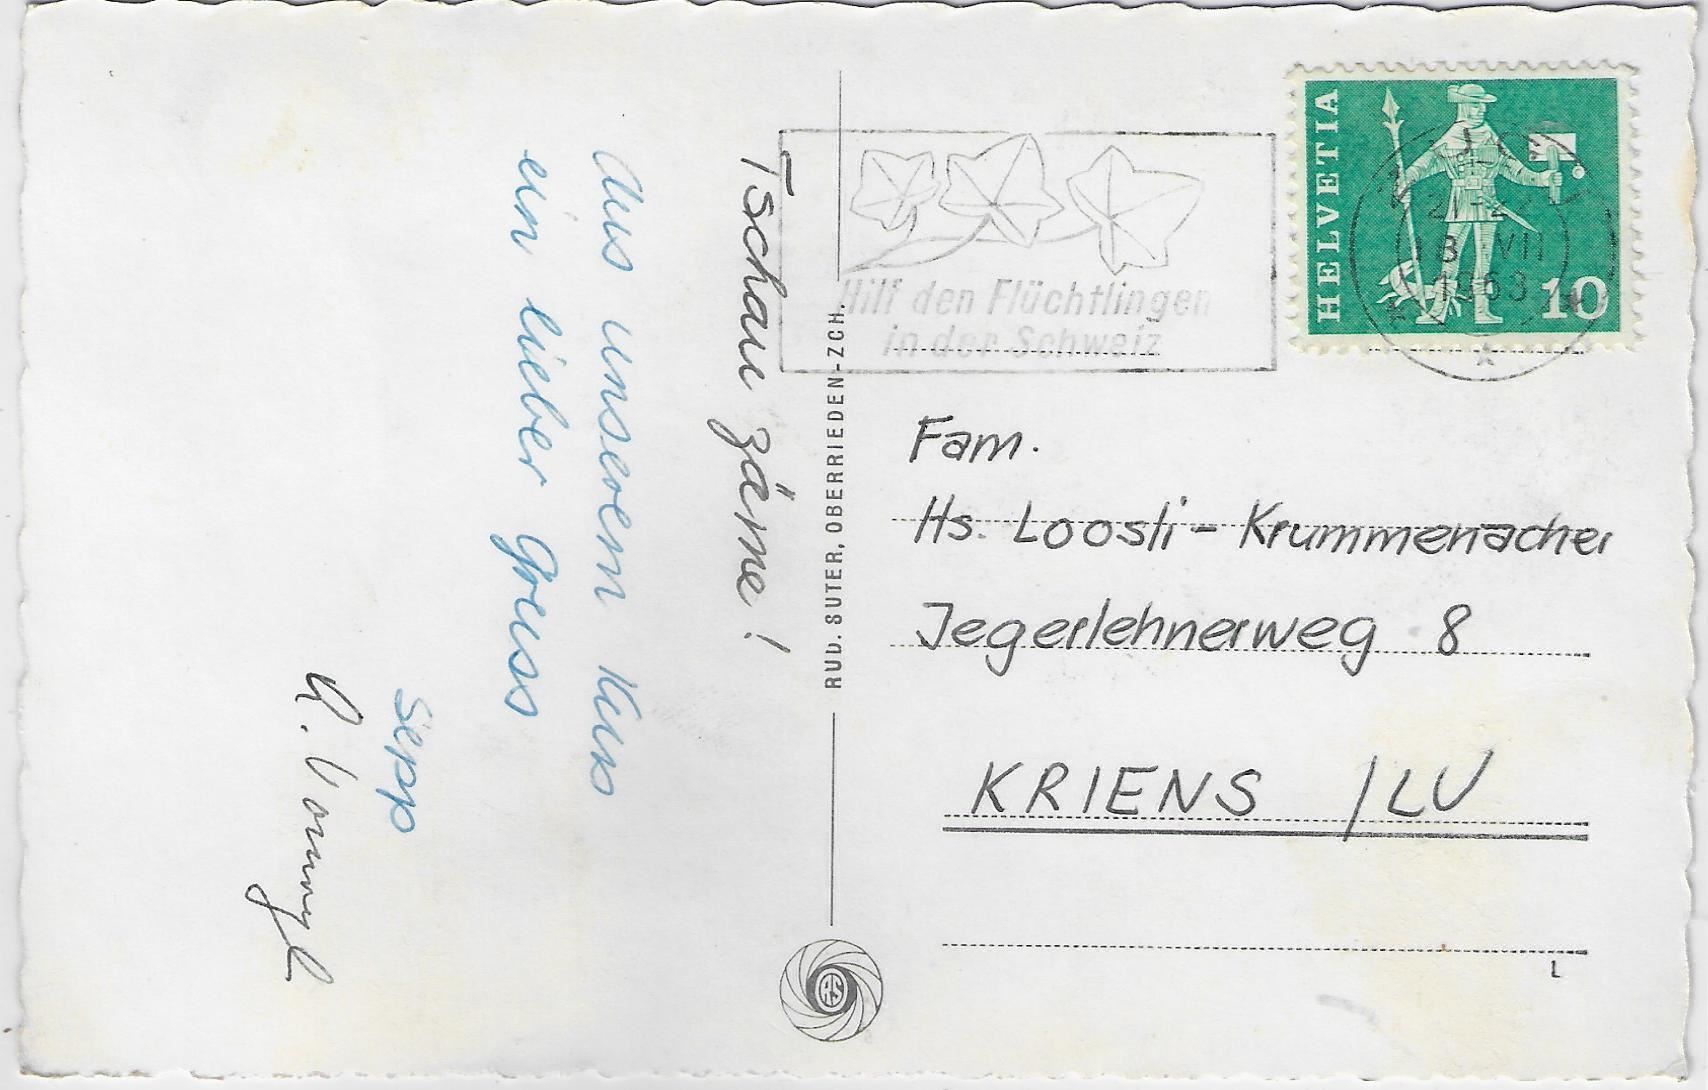 Tschau zäme!
Aus unserem Kurs
ein lieber Gruss
Sepp
RUD. SUTER, OBERRIEDEN-ZCH.
Hilf den Flüchtlingen
in der Schweiz
HELVETIA
10
VII
Fam.
Hs. Loosli-Krummenacher
Jegerlehnerweg 8
KRIENS / LU
L